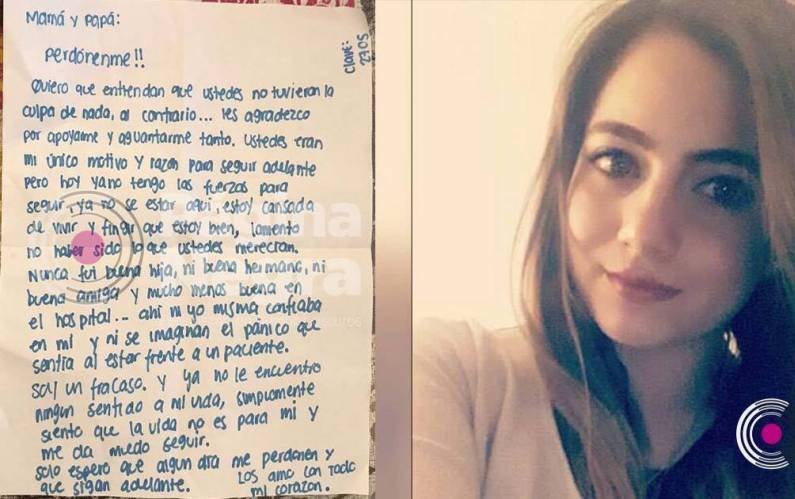 Mamá y Papá:
perdónenme!!
Clave:
2705
Quiero que entiendan que ustedes no tuvieron la
culpa de nada, al contrario... les agradezco
por apoyarme y aguantarme tanto. Ustedes eran
mi único motivo y razón para seguir adelante
pero hoy ya no tengo las fuerzas para
seguir, ya no se estar aquí, estoy cansada
de vivir y fingir que estoy bien, lamento
no haber sido lo que ustedes merecían.
Nunca fui buena hija, ni buena hermana, ni
buena amiga y mucho menos buena en
el hospital... ahí ni yo misma confiaba
en mí y ni se imaginan el pánico que
sentía al estar frente a un paciente.
soy un fracaso. Y ya no le encuentro
ningun sentido a mi vida, simplemente
siento que la vida no es para mi y
me da miedo seguir.
solo espero que algun día me perdonen y
que sigan adelante. Los amo con todo
mi corazon.